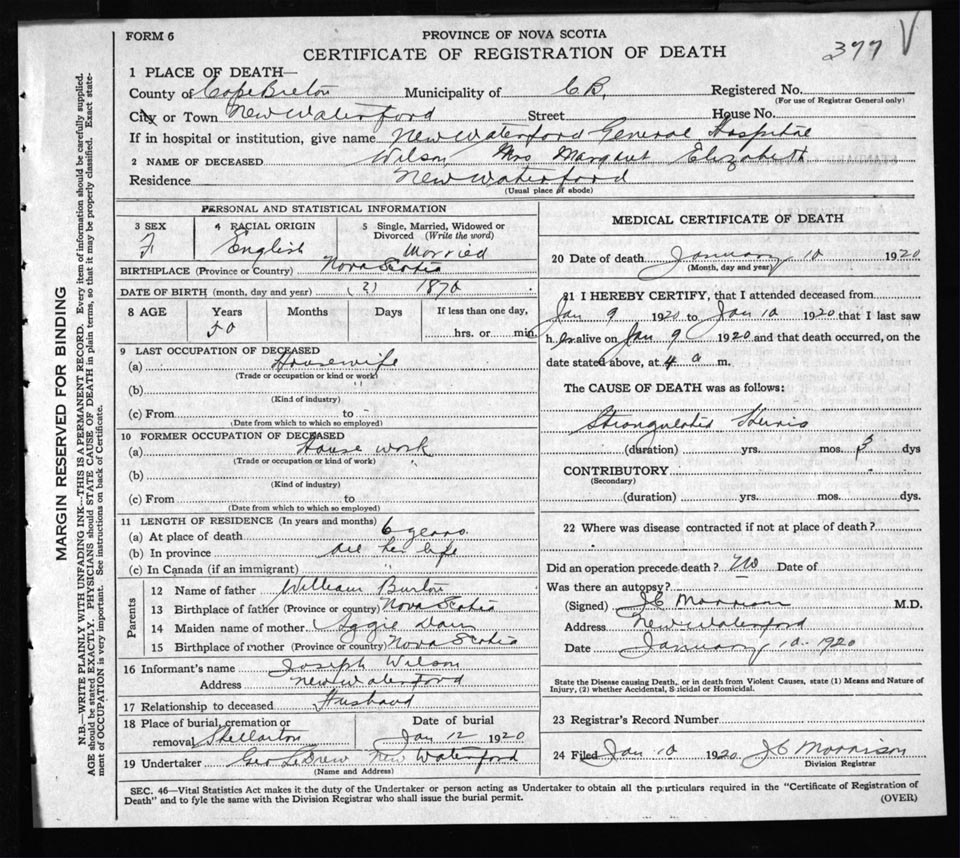 FORM 6 PROVINCE OF NOVA SCOTIA
CERTIFICATE OF REGISTRATION OF DEATH 377 V
1 PLACE OF DEATH—
County of Cape Breton Municipality of C.B. Registered No.
(For use of Registrar General only)
City or Town New Waterford Street House No.
If in hospital or institution, give name New Waterford General Hospital
2 NAME OF DECEASED Wilson Mrs Margaret Elizabeth
Residence New Waterford
(Usual place of abode)
MARGIN RESERVED FOR BINDING
N.B.—WRITE PLAINLY WITH UNFADING INK—THIS IS A PERMANENT RECORD. Every item of information should be carefully supplied.
AGE should be stated EXACTLY. PHYSICIANS should STATE CAUSE OF DEATH in plain terms, so that it may be properly classified. Exact state-
ment of OCCUPATION is very important. See instructions on back of Certificate.
PERSONAL AND STATISTICAL INFORMATION
3 SEX 4 RACIAL ORIGIN 5 Single, Married, Widowed or
Divorced (Write the word)
F English Married
BIRTHPLACE (Province or Country) Nova Scotia
DATE OF BIRTH (month, day and year) (?) 1870
8 AGE Years Months Days If less than one day,
50 hrs. or min.
9 LAST OCCUPATION OF DECEASED
(a) Housewife
(Trade or occupation or kind or work)
(b)
(Kind of industry)
(c) From to
(Date from which to which so employed)
10 FORMER OCCUPATION OF DECEASED
(a) House work
(Trade or occupation or kind of work)
(b)
(Kind of industry)
(c) From to
(Date from which to which so employed)
11 LENGTH OF RESIDENCE (In years and months)
(a) At place of death 6 years
(b) In province All her life
(c) In Canada (if an immigrant) "
Parents
12 Name of father William Burton
13 Birthplace of father (Province or country) Nova Scotia
14 Maiden name of mother Aggie
15 Birthplace of mother (Province or country) Nova Scotia
16 Informant's name Joseph Wilson
Address New Waterford
17 Relationship to deceased Husband
18 Place of burial, cremation or Date of burial
removal Stellarton Jan 12 1920
19 Undertaker Geo LeDrew New Waterford
(Name and Address)
MEDICAL CERTIFICATE OF DEATH
20 Date of death January 10 1920
(Month, day and year)
21 I HEREBY CERTIFY, that I attended deceased from
Jan 9 1920 to Jan 10 1920 that I last saw
her alive on Jan 9 1920 and that death occurred, on the
date stated above, at 4 a m.
The CAUSE OF DEATH was as follows:
Strangulated Hernia
(duration) yrs. mos. 3 dys
CONTRIBUTORY
(Secondary)
(duration) yrs. mos. dys.
22 Where was disease contracted if not at place of death?
Did an operation precede death? No Date of
Was there an autopsy?
(Signed) JC Morrison M.D.
Address New Waterford
Date January 10 1920
State the Disease causing Death, or in death from Violent Causes, state (1) Means and Nature of
Injury, (2) whether Accidental, Suicidal or Homicidal.
23 Registrar's Record Number
24 Filed Jan 10 1920 JC Morrison
Division Registrar
SEC. 46—Vital Statistics Act makes it the duty of the Undertaker or person acting as Undertaker to obtain all the particulars required in the "Certificate of Registration of
Death" and to fyle the same with the Division Registrar who shall issue the burial permit. (OVER)